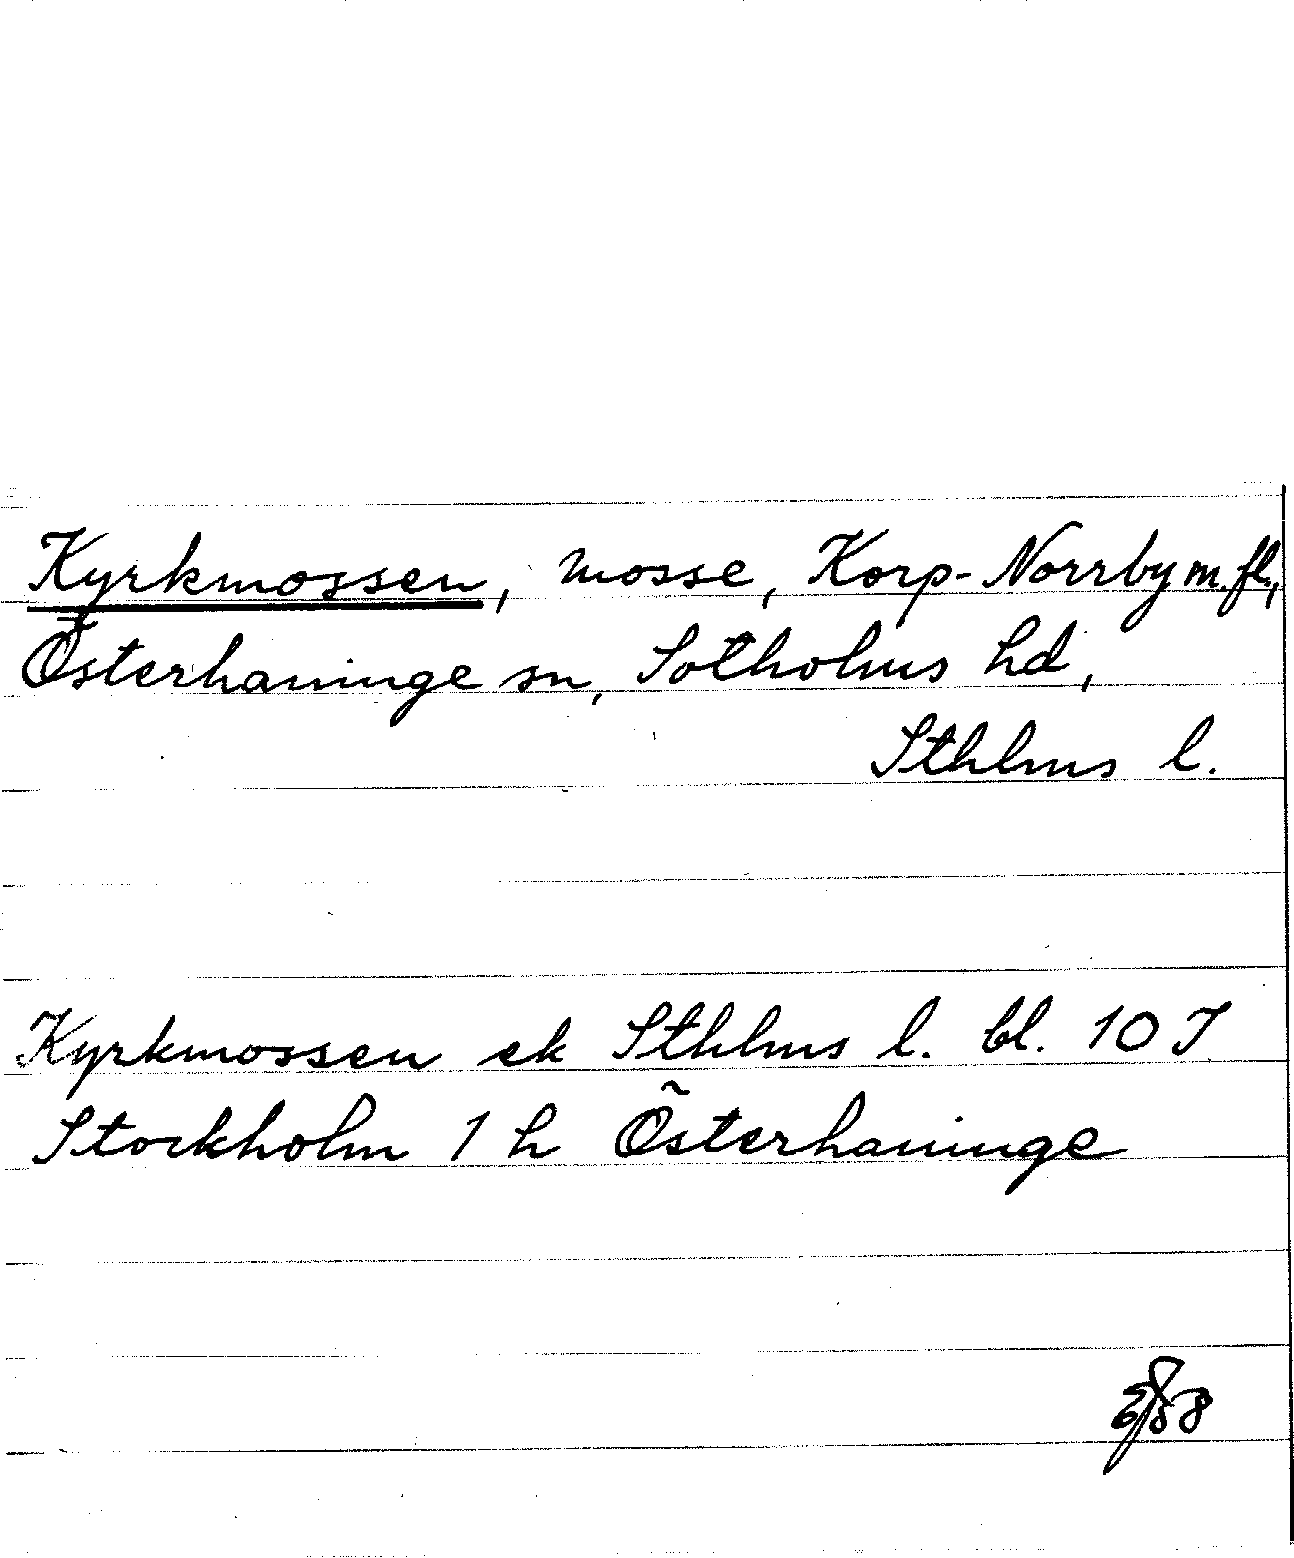 Kyrkmossen, mosse, Korp-Norrby m.fl.,
Österhaninge sn, Sotholms hd,
Sthlms l.
Kyrkmossen ek Sthlms l. bl. 10 J
Stockholm 1 h Österhaninge